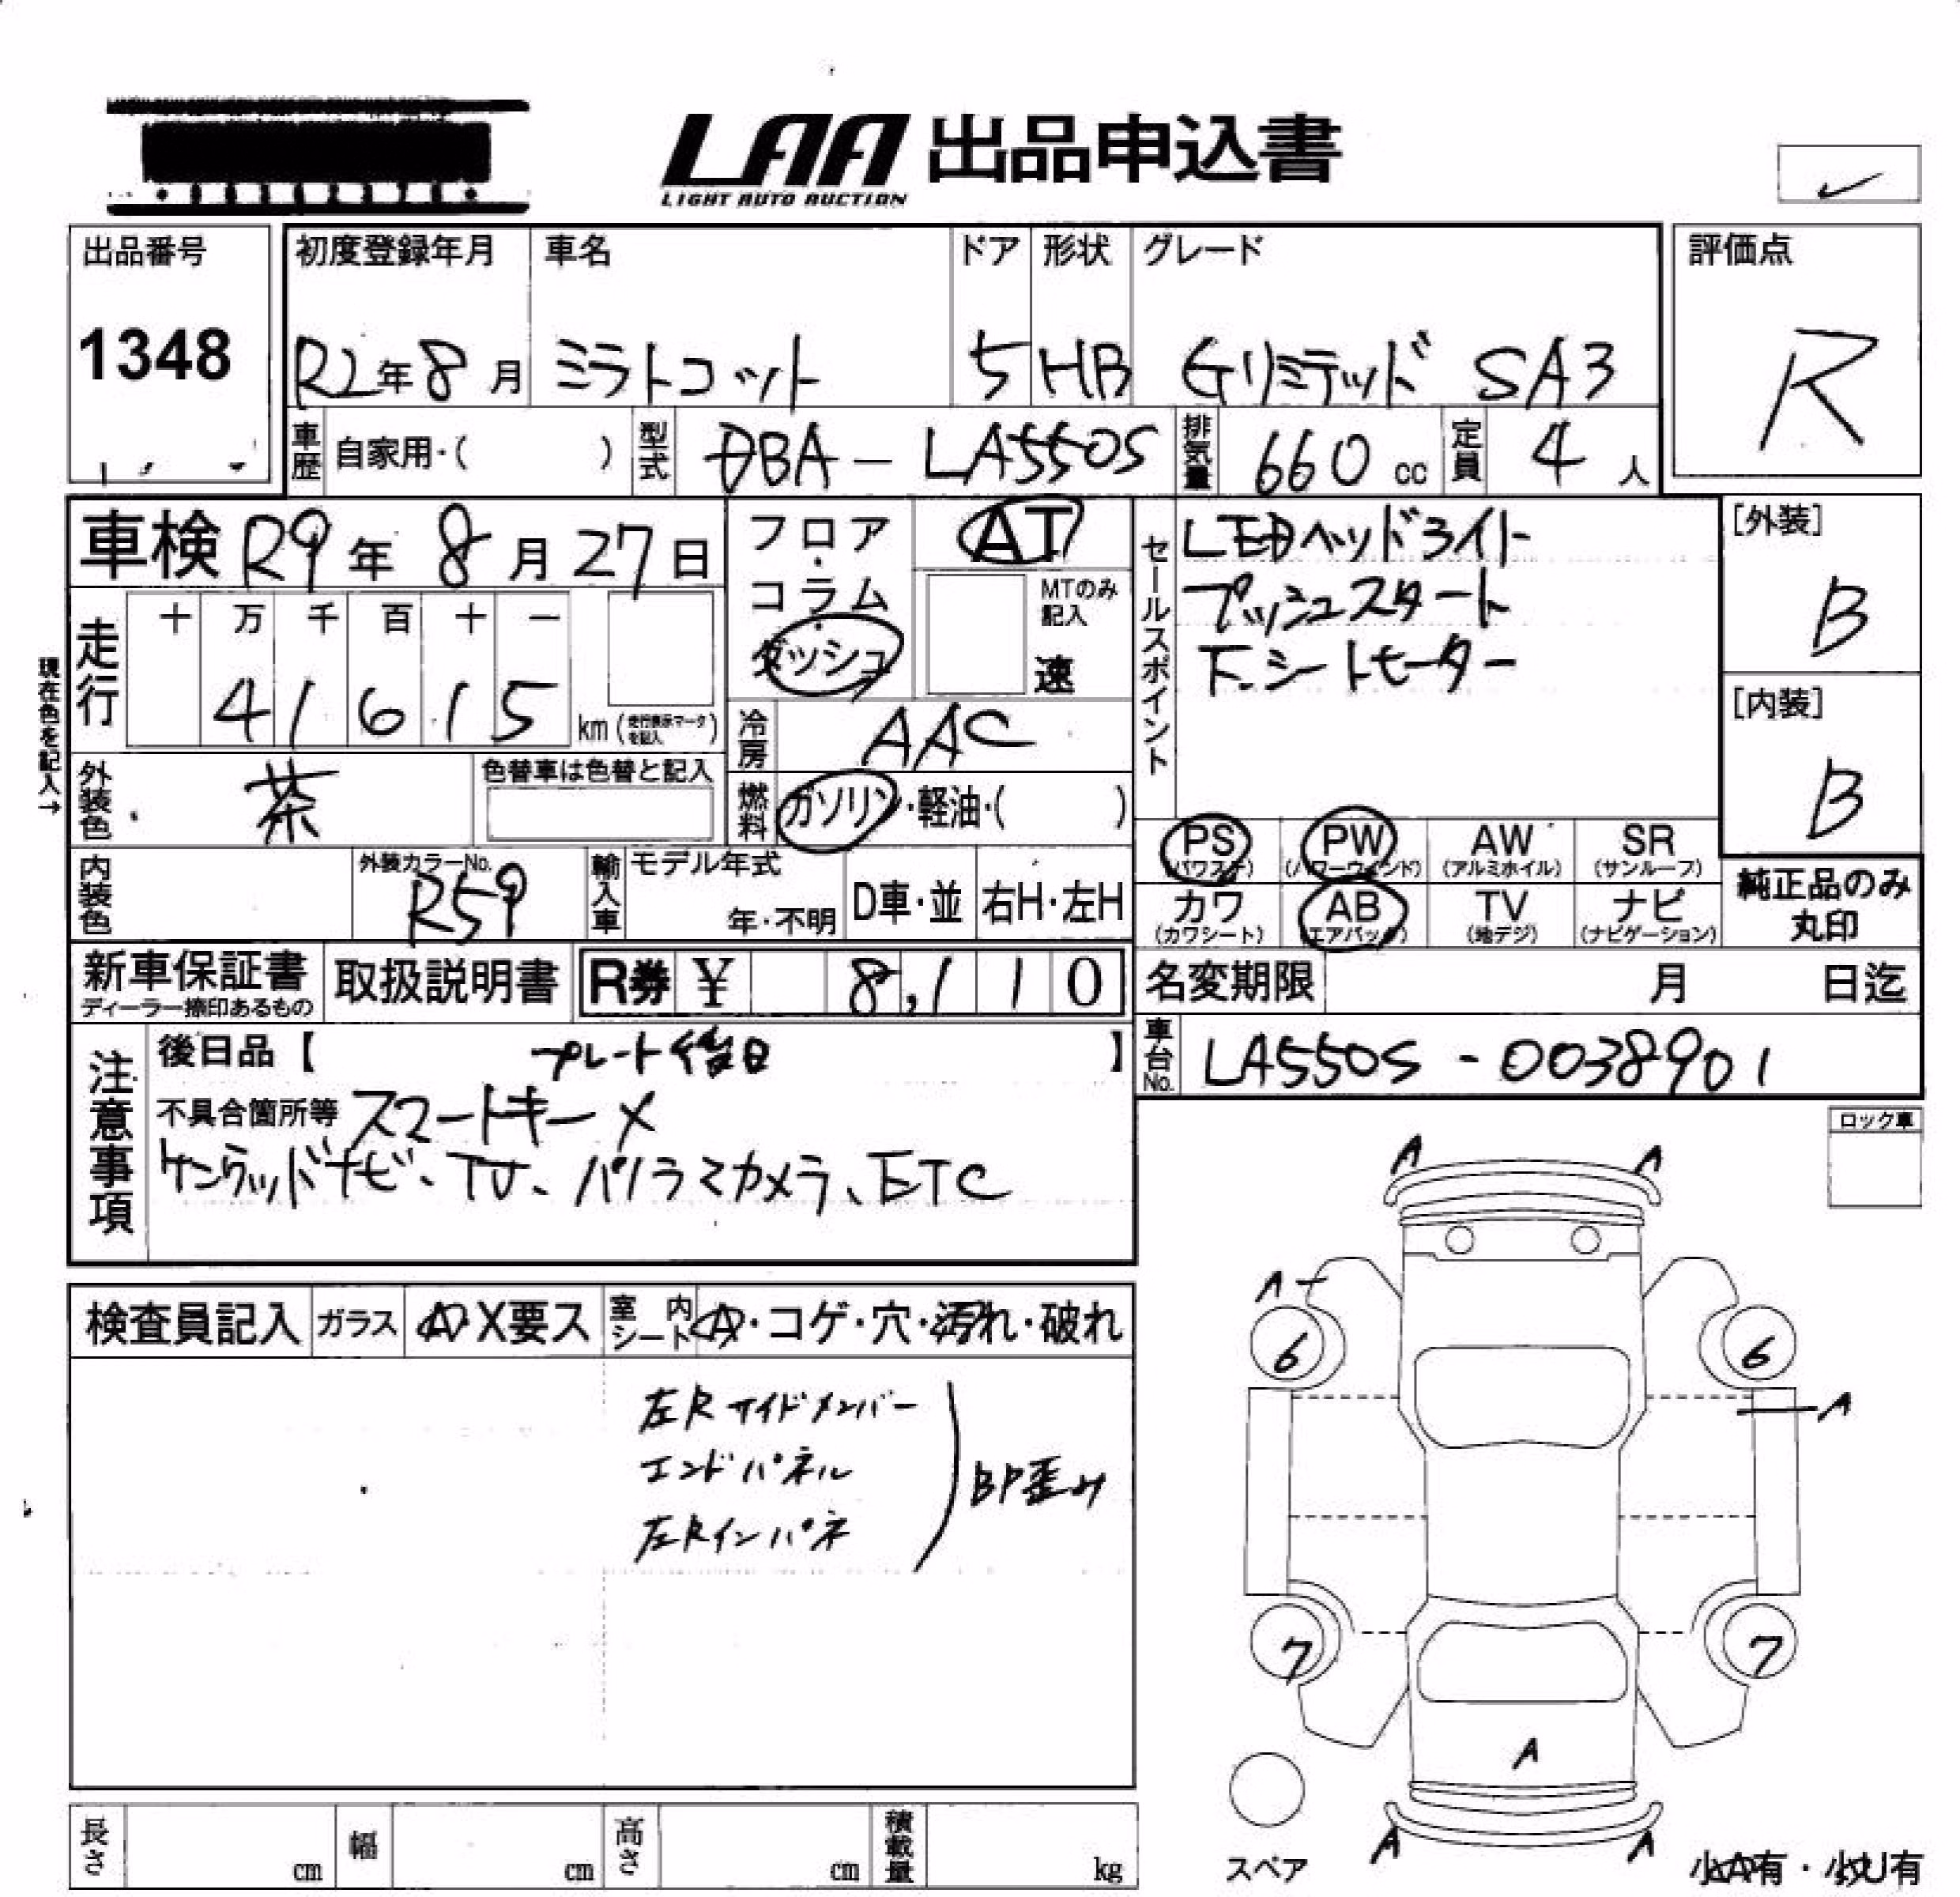 LAA 出品申込書
LIGHT AUTO AUCTION
出品番号
1348
初度登録年月
R2年8月
車名
ミラトコット
ドア
5
形状
HB
グレード
Gリミテッド SA3
評価点
R
車歴 自家用・( )
型式 DBA-LA550S
排気量 660 cc
定員 4 人
車検 R9年8月27日
フロア・コラム・ダッシュ
AT
MTのみ記入
速
走行
十 万 千 百 十 一
4 1 6 1 5 km (走行表示マークを記入)
現在色を記入→
冷房 AAC
外装色 茶
色替車は色替と記入
燃料 ガソリン・軽油・( )
内装色
外装カラーNo.
R59
輸入車 モデル年式
年・不明
D車・並
右H・左H
セールスポイント
LEDヘッドライト
プッシュスタート
[外装]
B
[内装]
B
PS (パワステ)
PW (パワーウィンド)
AW (アルミホイル)
SR (サンルーフ)
カワ (カワシート)
AB (エアバック)
TV (地デジ)
ナビ (ナビゲーション)
純正品のみ
丸印
新車保証書
ディーラー捺印あるもの
取扱説明書
R券 ¥ 8,110
名変期限 月 日迄
車台No. LA550S-0038901
注意事項
後日品【 プレート後日 】
不具合箇所等 スマートキー×
ケンウッドナビ、TV、パノラマカメラ、ETC
ロック車
検査員記入
ガラス
A・X要ス
室内シート
A・コゲ・穴・汚れ・破れ
左Rサイドメンバー
エンドパネル
左Rインパネ
BP歪み
A A
A
6 6
A
7 7
A
A A
スペア
小A有・小U有
長さ cm
幅 cm
高さ cm
積載量 kg